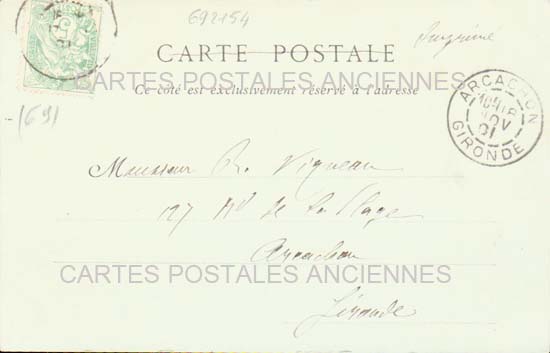 692154
Imprimé
CARTE POSTALE
CARTES POSTALES ANCIENNES
Ce côté est exclusivement réservé à l'adresse
1691
ARCACHON
NOV
01
GIRONDE
Monsieur R. Vigneau
127 Bd de la Plage
Arcachon
CARTES POSTALES ANCIENNES
Gironde